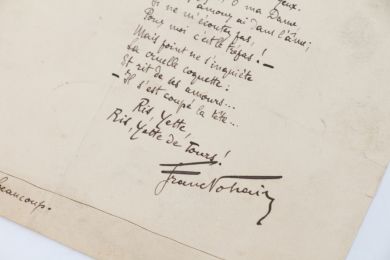 yeux.
ô ma Dame,
Si ne m'écoutez pas,
Pour moi c'est le trépas !
Mais point ne s'inquiète
La cruelle coquette :
Et rit de ses amours...
Il s'est coupé la tête...
Ris, Yette,
Ris, Yette de Tours !
Franc Nohain
beaucoup.